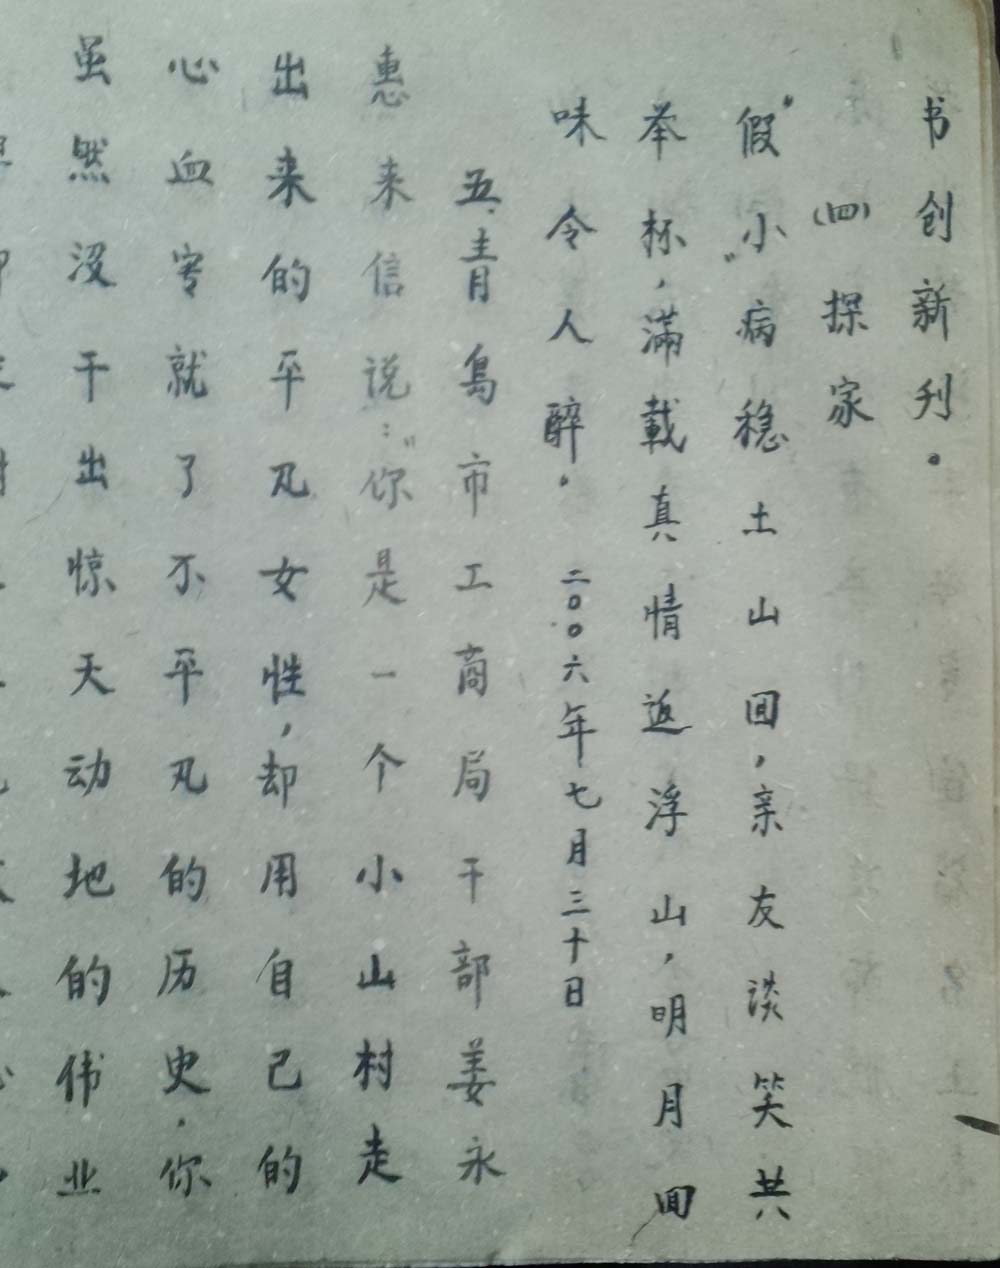 书创新刊。
(四)探家
假“小”病稳土山回,亲友谈笑共
举杯,滿載真情返浮山,明月回
味令人醉。二〇〇六年七月三十日
五、青島市工商局干部姜永
惠来信说:“你是一个小山村走
出来的平凡女性,却用自己的
心血写就了不平凡的历史.你
虽然没干出惊天动地的伟业